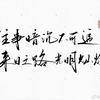 往事暗沉不可追
来日之路光明灿烂